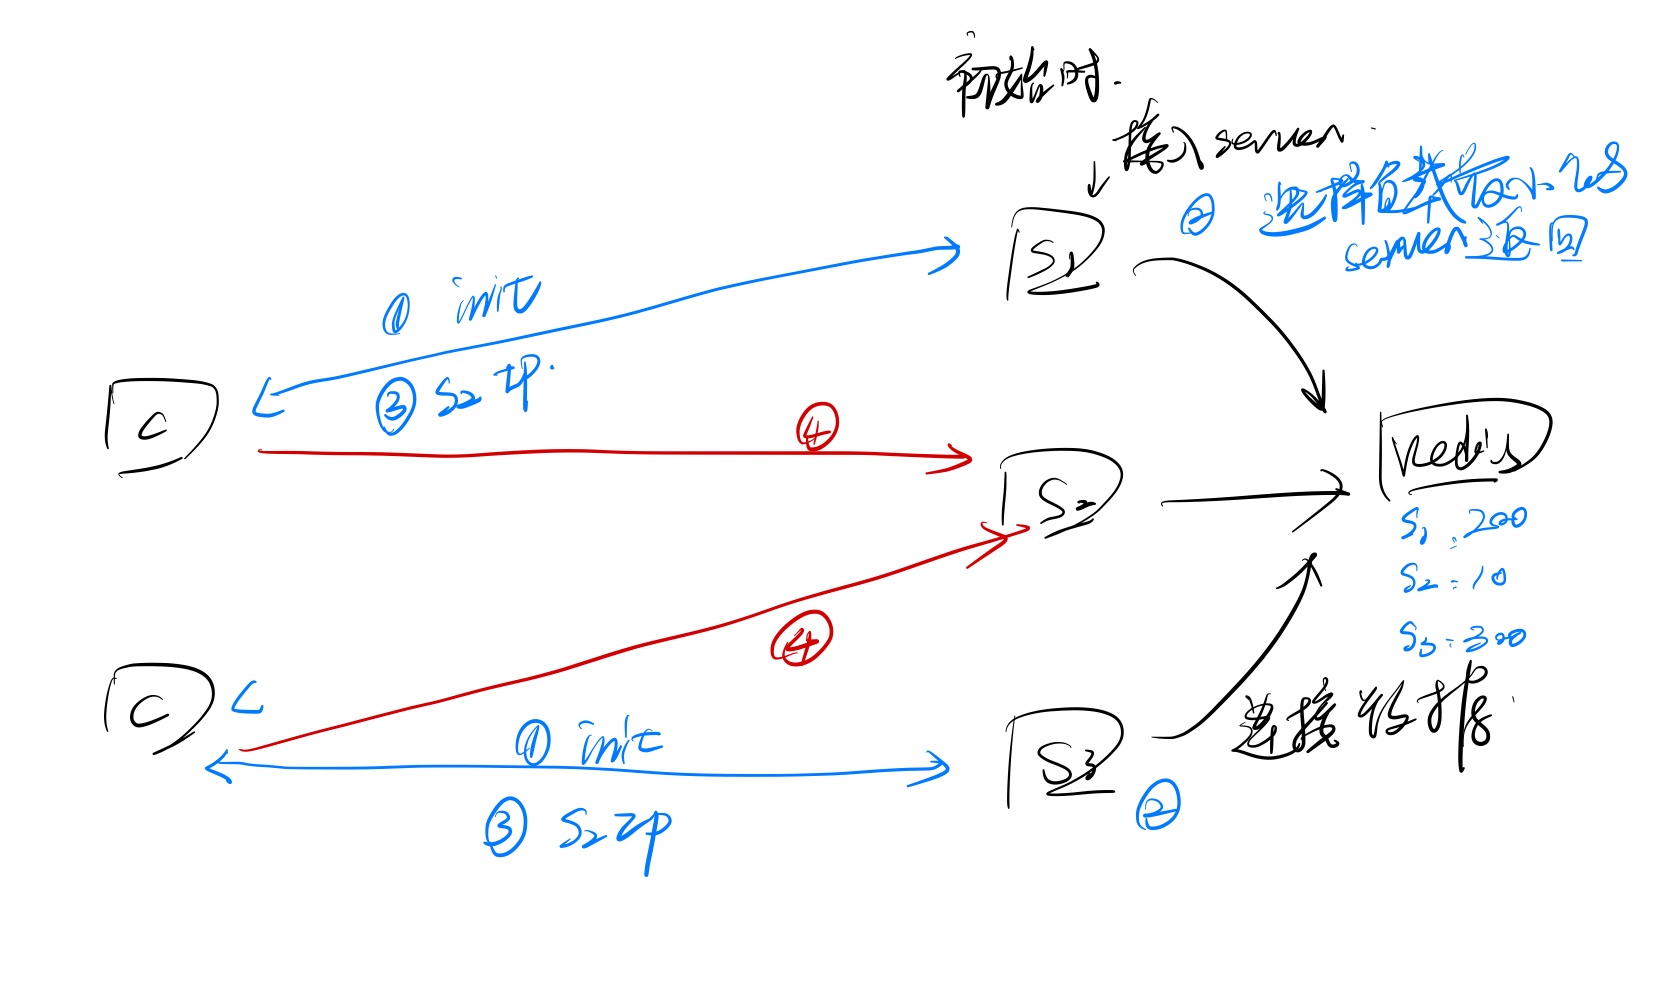 初始时.
接入server.
② 选择负载最小的
server返回
S1
① init
③ S2 IP.
④
C
Redis
S2
S1:200
S2:10
S3:300
④
C
连接数据
① init
S3
②
③ S2 IP